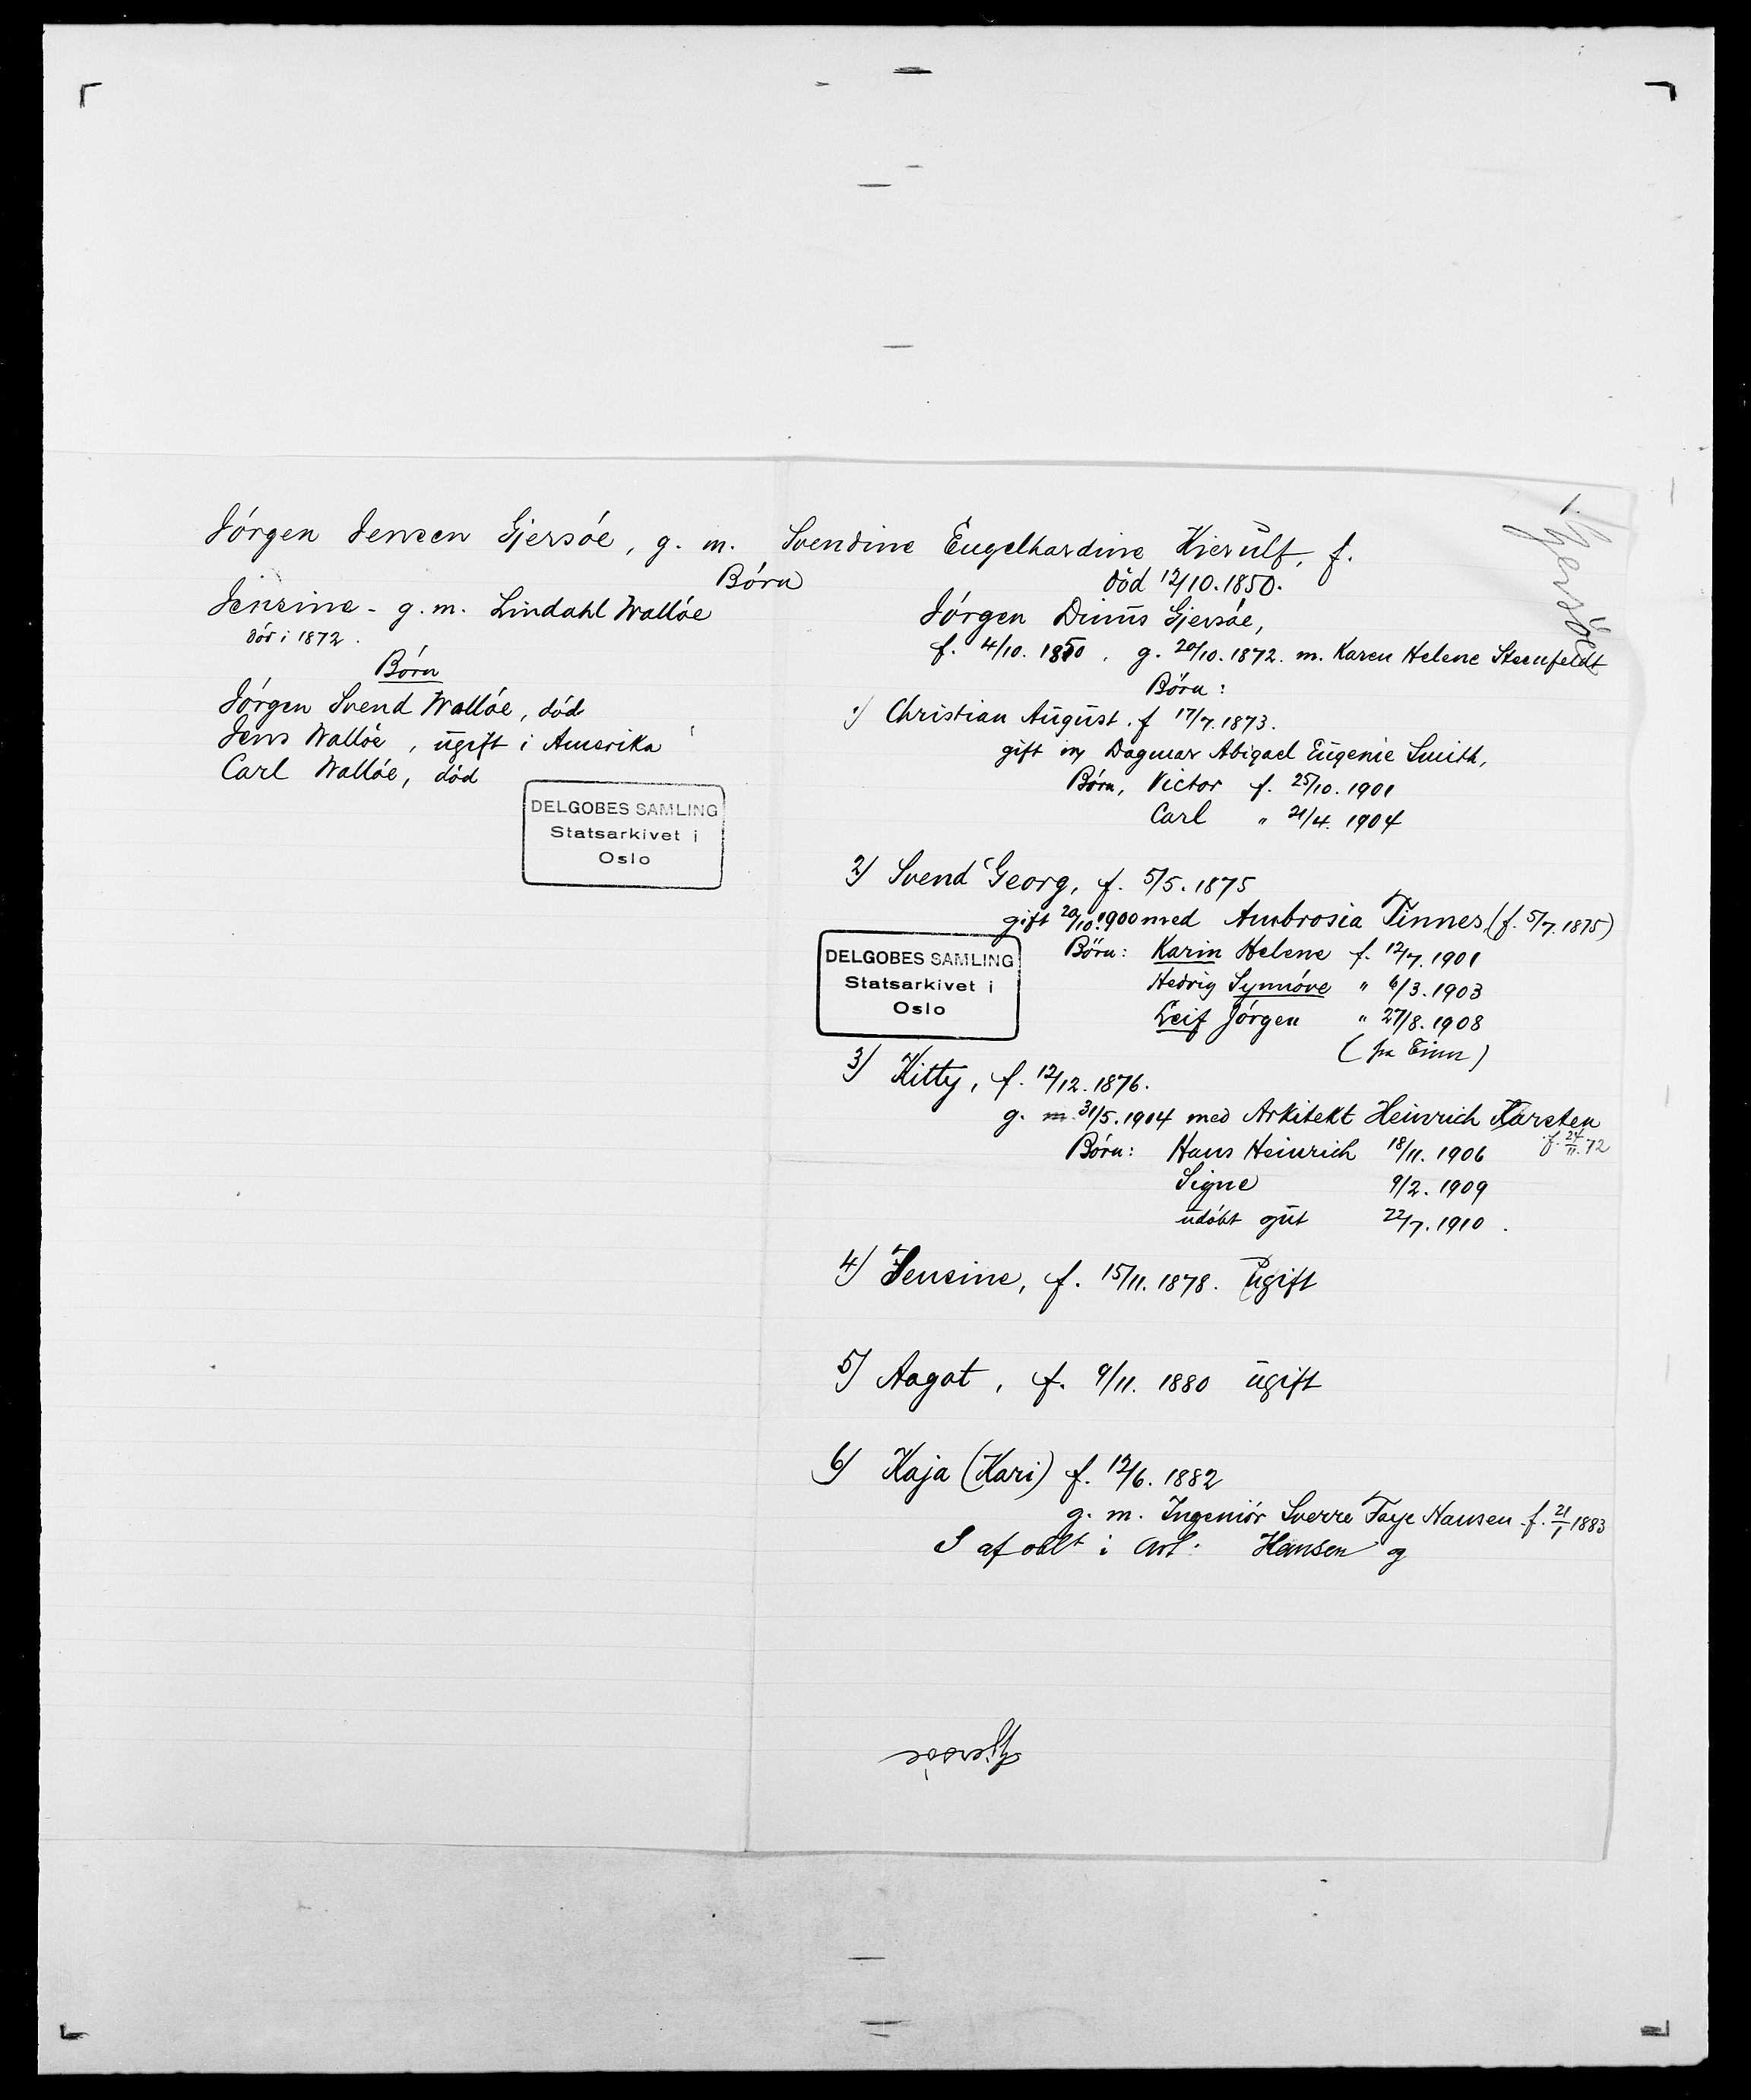 Gjersöe
Jörgen Jensen Gjersöe, g. m. Svendine Engelhardine Kierulf, f.
død 12/10. 1850.
Börn
Jensine - g. m. Lindahl Wallöe
död i 1872.
Börn
Jörgen Svend Wallöe, död
Jens Wallöe, ugift i Amerika
Carl Wallöe, död
DELGOBES SAMLING
Statsarkivet i
Oslo
Jörgen Dinus Gjersöe,
f. 4/10. 1850. g. 20/10. 1872. m. Karen Helene Steenfeldt
Börn:
1) Christian August. f 17/7. 1873.
gift m Dagmar Abigael Eugenie Smith,
Börn, Victor f. 25/10. 1901
Carl " 21/4. 1904
2) Svend Georg, f. 5/5. 1875
gift 20/10. 1900 med Ambrosia Tinnes (f. 5/7. 1875)
Börn: Karin Helene f. 12/7. 1901
Hedvig Synnöve " 6/3. 1903
Leif Jörgen " 27/8. 1908
DELGOBES SAMLING
Statsarkivet i
Oslo
3) Kitty, f. 12/12. 1876.
g. m. 31/5. 1904 med Arkitekt Heinrich Karsten
f. 24/11. 72
Börn: Hans Heinrich 18/11. 1906
Signe 9/2. 1909
udöbt gut 22/7. 1910.
4) Jensine, f. 15/11. 1878. Ugift
5) Aagot, f. 9/11. 1880 ugift
6) Kaja (Kari) f. 12/6. 1882
g. m. Ingeniör Sverre Faye Hansen. f. 21/1 1883
S af oblt i Art. Hansen og
Gjersöe